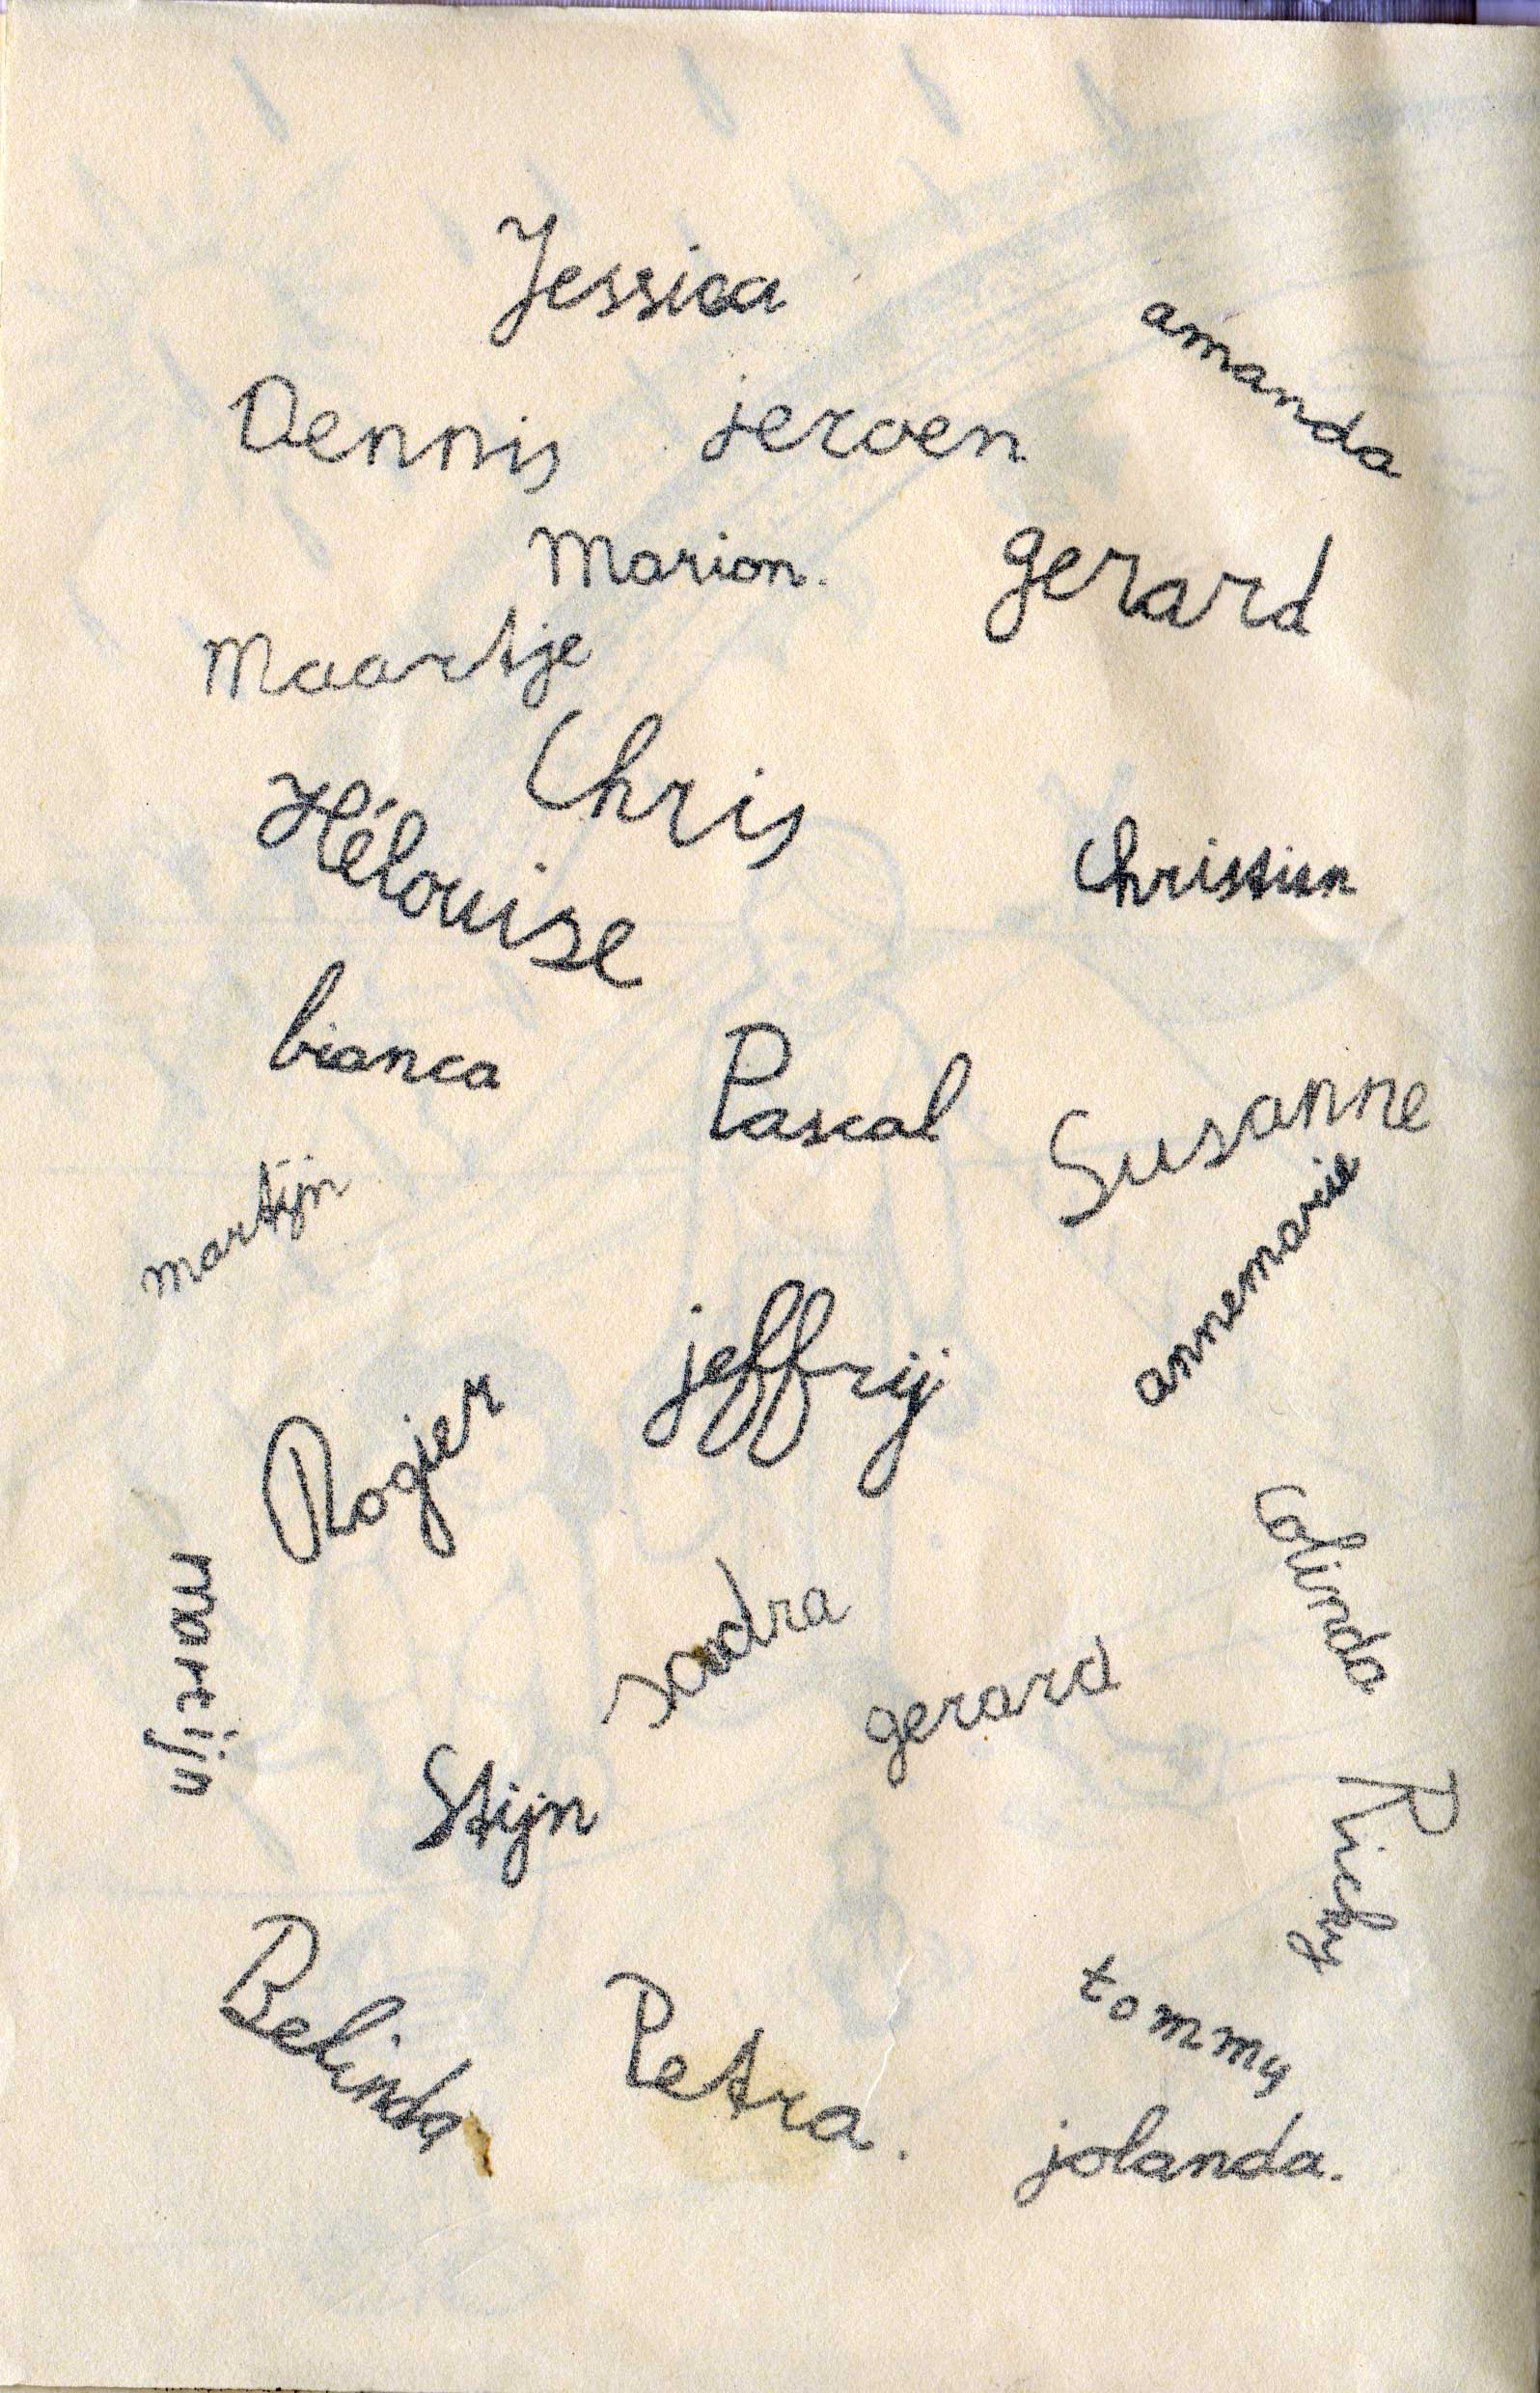 Jessica
amanda
Dennis
jeroen
Marion.
gerard
Maartje
Chris
Hélouise
Christian
bianca
Pascal
Susanne
martijn
annemarie
jeffrij
Rogier
Colinda
martijn
sandra
gerard
Stijn
Richy
Belinda
Petra.
tommy
jolanda.